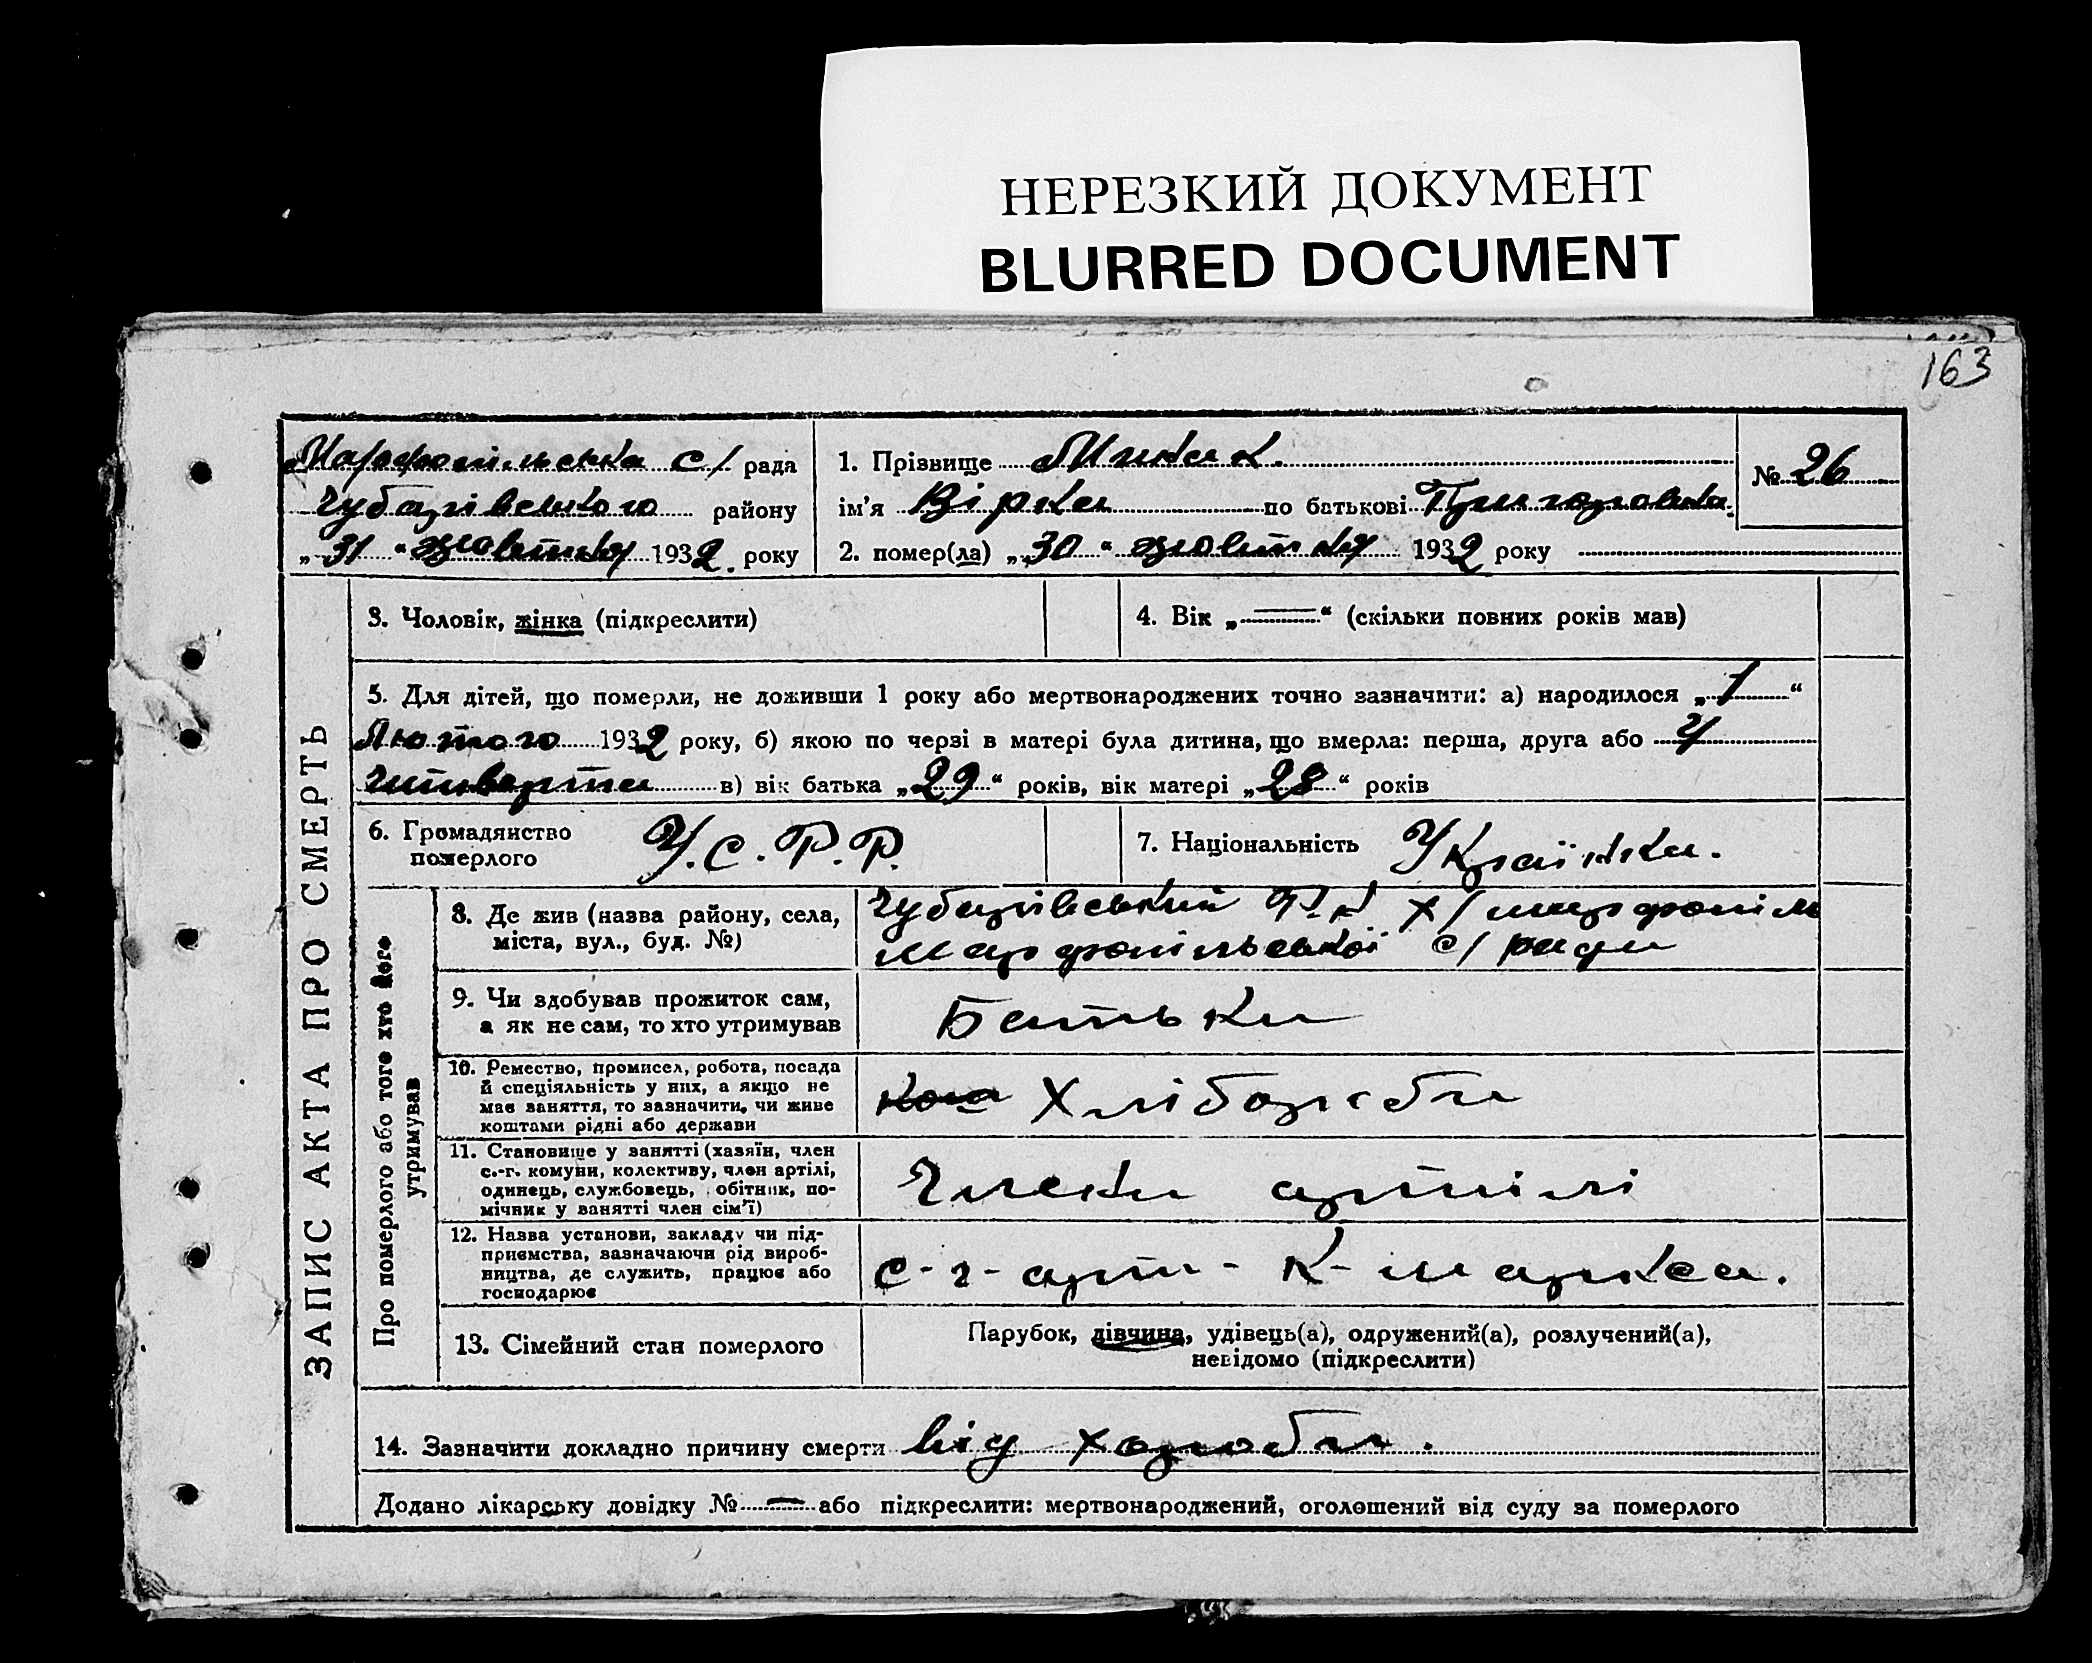 НЕРЕЗКИЙ ДОКУМЕНТ
BLURRED DOCUMENT
163
Марфопільська с/ рада
Чубарівського району
„31“ жовтня 1932. року
1. Прізвище
ім'я Вірка по батькові Григоровна.
2. помер(ла) „30“ жовтня 1932 року
№ 26
ЗАПИС АКТА ПРО СМЕРТЬ
3. Чоловік, жінка (підкреслити)
4. Вік „—“ (скільки повних років мав)
5. Для дітей, що померли, не доживши 1 року або мертвонароджених точно зазначити: а) народилося „1“
Лютого 1932 року, б) якою по черзі в матері була дитина, що вмерла: перша, друга або
в) вік батька „29“ років, вік матері „28“ років
6. Громадянство
померлого
У.С.Р.Р.
7. Національність Українка.
Про померлого або того хто його
утримував
8. Де жив (назва району, села,
міста, вул., буд. №)
Чубарівський Р.н х/ марфопіль
марфопільської с/ ради
9. Чи здобував прожиток сам,
а як не сам, то хто утримував
Батьки
10. Ремество, промисел, робота, посада
й спеціяльність у них, а якщо не
має заняття, то зазначити, чи живе
коштами рідні або держави
Хлібороби
11. Становище у занятті (хазяїн, член
с.-г. комуни, колективу, член артілі,
одинець, службовець, обітник, по-
мічник у занятті член сім'ї)
Члени артілі
12. Назва установи, закладу чи під-
приємства, зазначаючи рід вироб-
ництва, де служить, працює або
господарює
с-г-арт- К-маркса.
13. Сімейний стан померлого
Парубок, дівчина, удівець(а), одружений(а), розлучений(а),
невідомо (підкреслити)
14. Зазначити докладно причину смерти від хороби.
Додано лікарську довідку № — або підкреслити: мертвонароджений, оголошений від суду за померлого